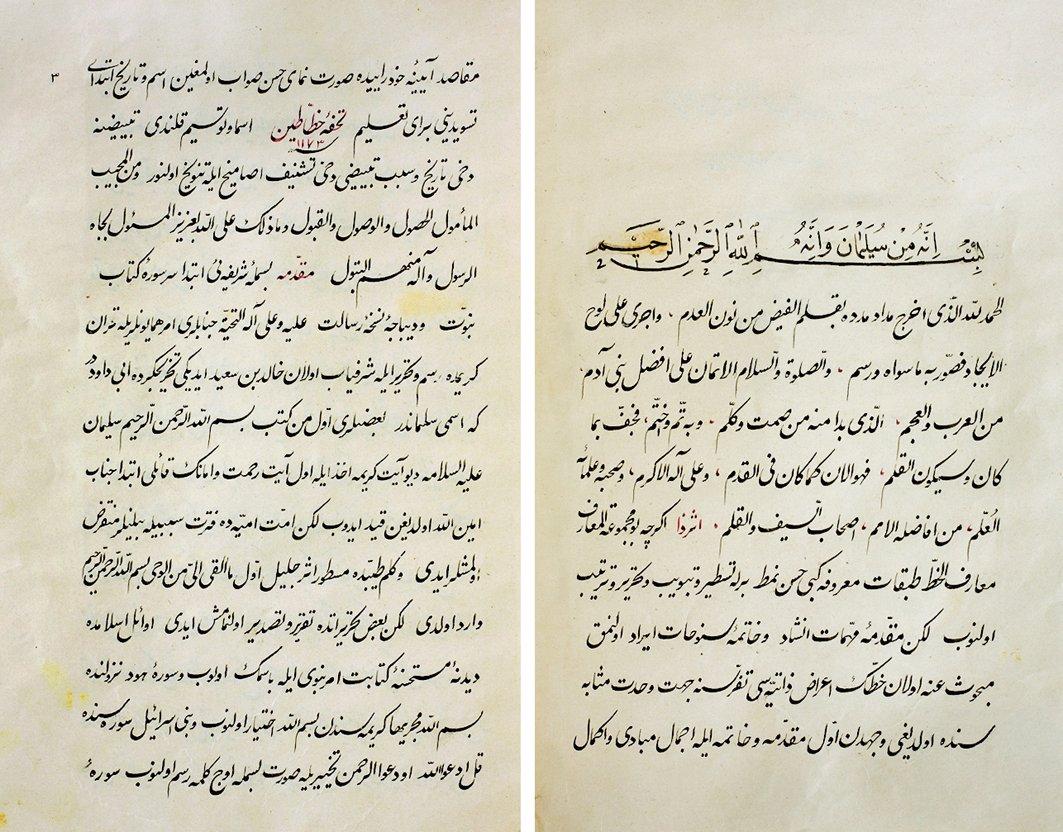 إنه من سليمان وإنه بسم الله الرحمن الرحيم
الحمد لله الذى اخرج مداد مدده بقلم الفيض من نون العدم ، واجرى على لوح
الايجاد فصوّر به ماسواه ورسم ، والصلوة والسلام الاتمان على افضل بنى آدم
من العرب والعجم ، الذى بدا منه من صمت وكلّم ، وبه تمّ وختم ، فجفّ بما
كان وسيكون القلم ، فهو الان كما كان فى القدم ، وعلى آله الاكرم ، وصحبه وعلمآ
العُلّم ، من افاضله الامم ، اصحاب السيف والقلم ، اثرذا اكرچه بو مجموعة المعارف
معارف الخط طبقات معروفه كبى حسن نمط برله تسطير وتبويب وتحرير وترتيب
اولنوب لكن مقدّمهٔ مهمات انشاد وخاتمهٔ سنوحات ايراد اولنمق
مبحوث عنه اولان خطّك اعراض ذاتيه‌سى تفرسنه جهت وحدت مثابه
سنده اولديغى وجهدن اوّل مقدّمه وخاتمه ايله اجمال مبادى واكمال
٣
مقاصد آيينهٔ خودراييده صورت نماى حسن صواب اولمغين اسم و تاريخ ابتداى
تسويدينى براى تعليم تحفهٔ خطاطين اسما وتوسيم قلندى تبييضينه
١١٧٣
دخى تاريخ وسبب تبييضى دخى تشنيف اصاميخ ايله تنويخ اولنور ومن المجيب
المأمول الحصول والوصول والقبول وماذلك على الله بعزيز المسئول بجاه
الرسول وآله منهم البتول مقدّمه بسملهٔ شريفه‌نى ابتدا سر سورهٔ كتاب
نبوّت وديباجهٔ نسخهٔ رسالت عليه وعلى آله التحيّة جنابلرى امر همايونلريله قران
كريمده رسم وتحرير ايله شرفياب اولان خالد بن سعيد ايديكى تخريجكردهٔ ابى داود در
كه اسمى سليماندر بعضيلرى اوّل من كتب بسم الله الرحمن الرحيم سليمان
عليه السلامه ديو آيت كريمه اخذ ايله اول آيت رحمت وامانك قائلى ابتدا جناب
امين الله اولديغن قيد ايدوب لكن امّت اميّه ده فترت سببيله بيلنلر منقرض
اولمشله ايدى وكلم طيّبده مسطور اثر جليل اوّل ما القى الىّ من الوحى بسم الله الرحمن الرحيم
وارد اولدى لكن بعض تحريراتده تقرير وتصدير اولنمامش ايدى اوائل اسلامده
ديدنهٔ مستحسنهٔ كتابت امر نبوى ايله باسمك اولوب وسورهٔ هود نزولنده
بسم الله مجريها كريمه‌سندن بسم الله اختيار اولنوب وبنى اسرائيل سوره‌سنده
قل ادعوا الله اودعوا الرحمن تخييريله صورت بسمله اوچ كلمه رسم اولنوب سورهٔ